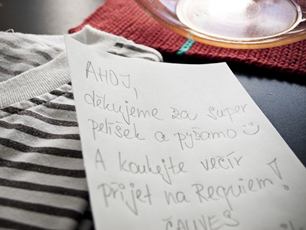 AHOJ,
děkujeme za super
pelíšek a pyžamo ☺
A koukejte večír
přijet na Requiem!
ČAUVES